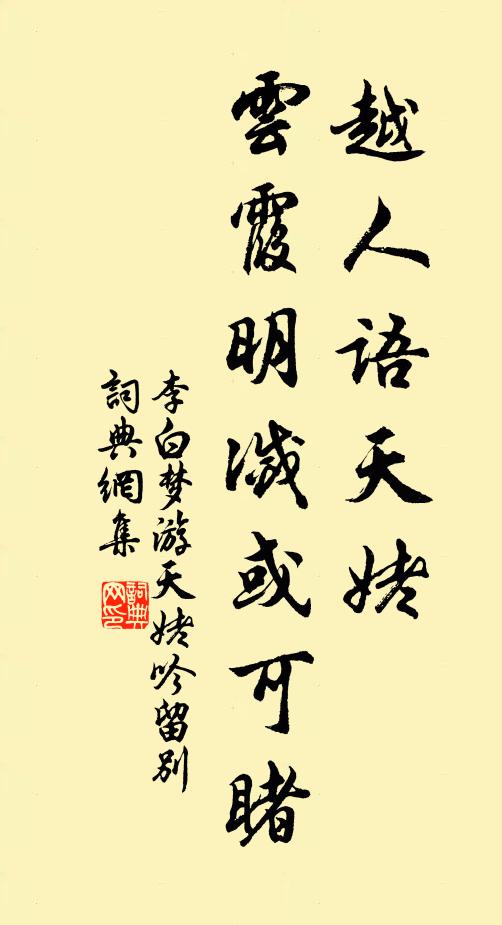 越人語天姥
雲霞明滅或可睹
李白梦游天姥吟留別
詞典網集
詞典网印